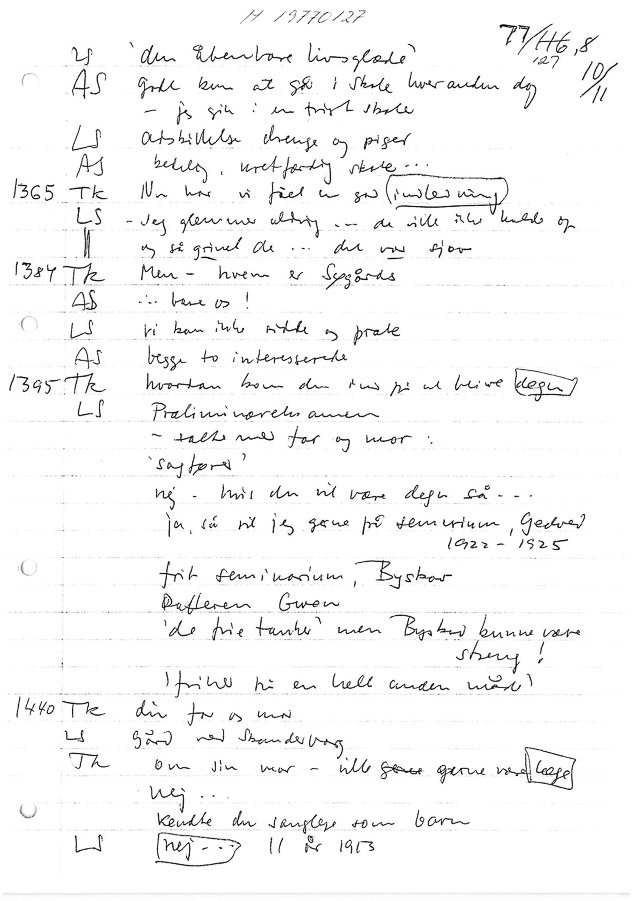 H 19770127
77/H6,8
127
10/11
LS 'den åbenbare livsglæde'
AS Godt kun at gå i skole hver anden dag
– jeg gik i en trist skole
LS adskillelse drenge og piger
AS kedelig, uretfærdig skole ...
1365 Tk Nu har vi fået en god indledning
LS – jeg glemmer aldrig ... de ville ikke holde op
|| og så grinet de ... det var sjov
1384 Tk Men – hvem er Søgårds
AS ... bare os !
LS vi kan ikke sidde og prale
AS begge to interesserede
1395 Tk hvordan kom du ind på at blive degn
LS Præliminæreksamen
– talte med far og mor :
'sagfører'
nej – hvis du vil være degn så ...
ja, så vil jeg gerne på seminarium, Gedved
1922 – 1925
frit seminarium, Byskov
'de frie tanker' men Byskov kunne være
streng !
'frihed på en helt anden måde'
1440 Tk din far og mor
LS gård ved Skanderborg
Tk om sin mor – ville gerne gerne være læge
Nej ...
kendte du sanglege som barn
LS nej ... 11 år 1913